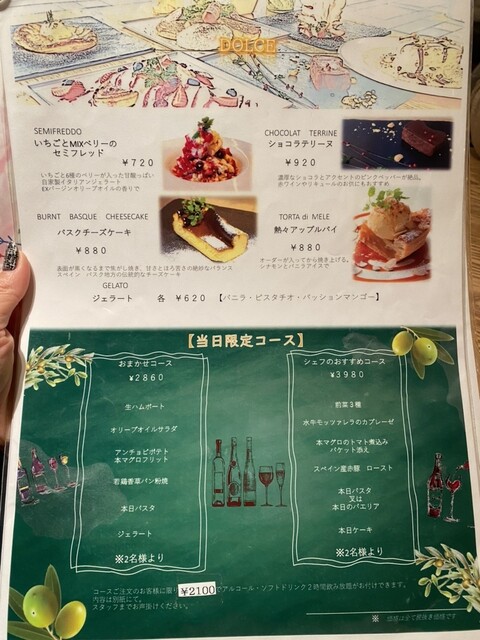 DOLCE
SEMIFREDDO
いちごとMIXベリーの
セミフレッド
￥７２０
いちごと6種のベリーが入った甘酸っぱい
自家製イタリアンジェラート
EXバージンオリーブオイルの香りで
CHOCOLAT TERRINE
ショコラテリーヌ
￥９２０
濃厚なショコラとアクセントのピンクペッパーが絶品。
赤ワインやリキュールのお供にもおすすめ
BURNT BASQUE CHEESECAKE
バスクチーズケーキ
￥８８０
表面が黒くなるまで焦がし焼き、甘さとほろ苦さの絶妙なバランス
スペイン バスク地方の伝統的なチーズケーキ
TORTA di MELE
熱々アップルパイ
￥８８０
オーダーが入ってから焼き上げる。
シナモンとバニラアイスで
GELATO
ジェラート 各 ￥６２０ 【バニラ・ピスタチオ・パッションマンゴー】
【当日限定コース】
おまかせコース
￥２８６０
生ハムポート
オリーブオイルサラダ
アンチョビポテト
本マグロフリット
若鶏香草パン粉焼
本日パスタ
ジェラート
※2名様より
シェフのおすすめコース
￥３９８０
前菜３種
水牛モッツァレラのカプレーゼ
本マグロのトマト煮込み
バケット添え
スペイン産赤豚 ロースト
本日パスタ
又は
本日のパエリア
本日ケーキ
※2名様より
コースご注文のお客様に限り￥2100でアルコール・ソフトドリンク２時間飲み放題がお付けできます。
内容は別紙にて。
スタッフまでお声掛けください。
※ 価格は全て税抜き価格です